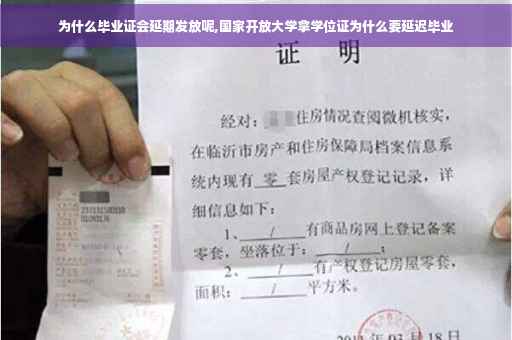 为什么毕业证会延期发放呢,国家开放大学拿学位证为什么要延迟毕业
证 明
经对: 住房情况查阅微机核实,
在临沂市房产和住房保障局档案信息系
统内现有 零 套房屋产权登记记录,详
细信息如下:
1、 / 有商品房网上登记备案
零套,坐落位于: / ;
2、 / 有产权登记房屋零套,
面积: / 平方米。
03月18日